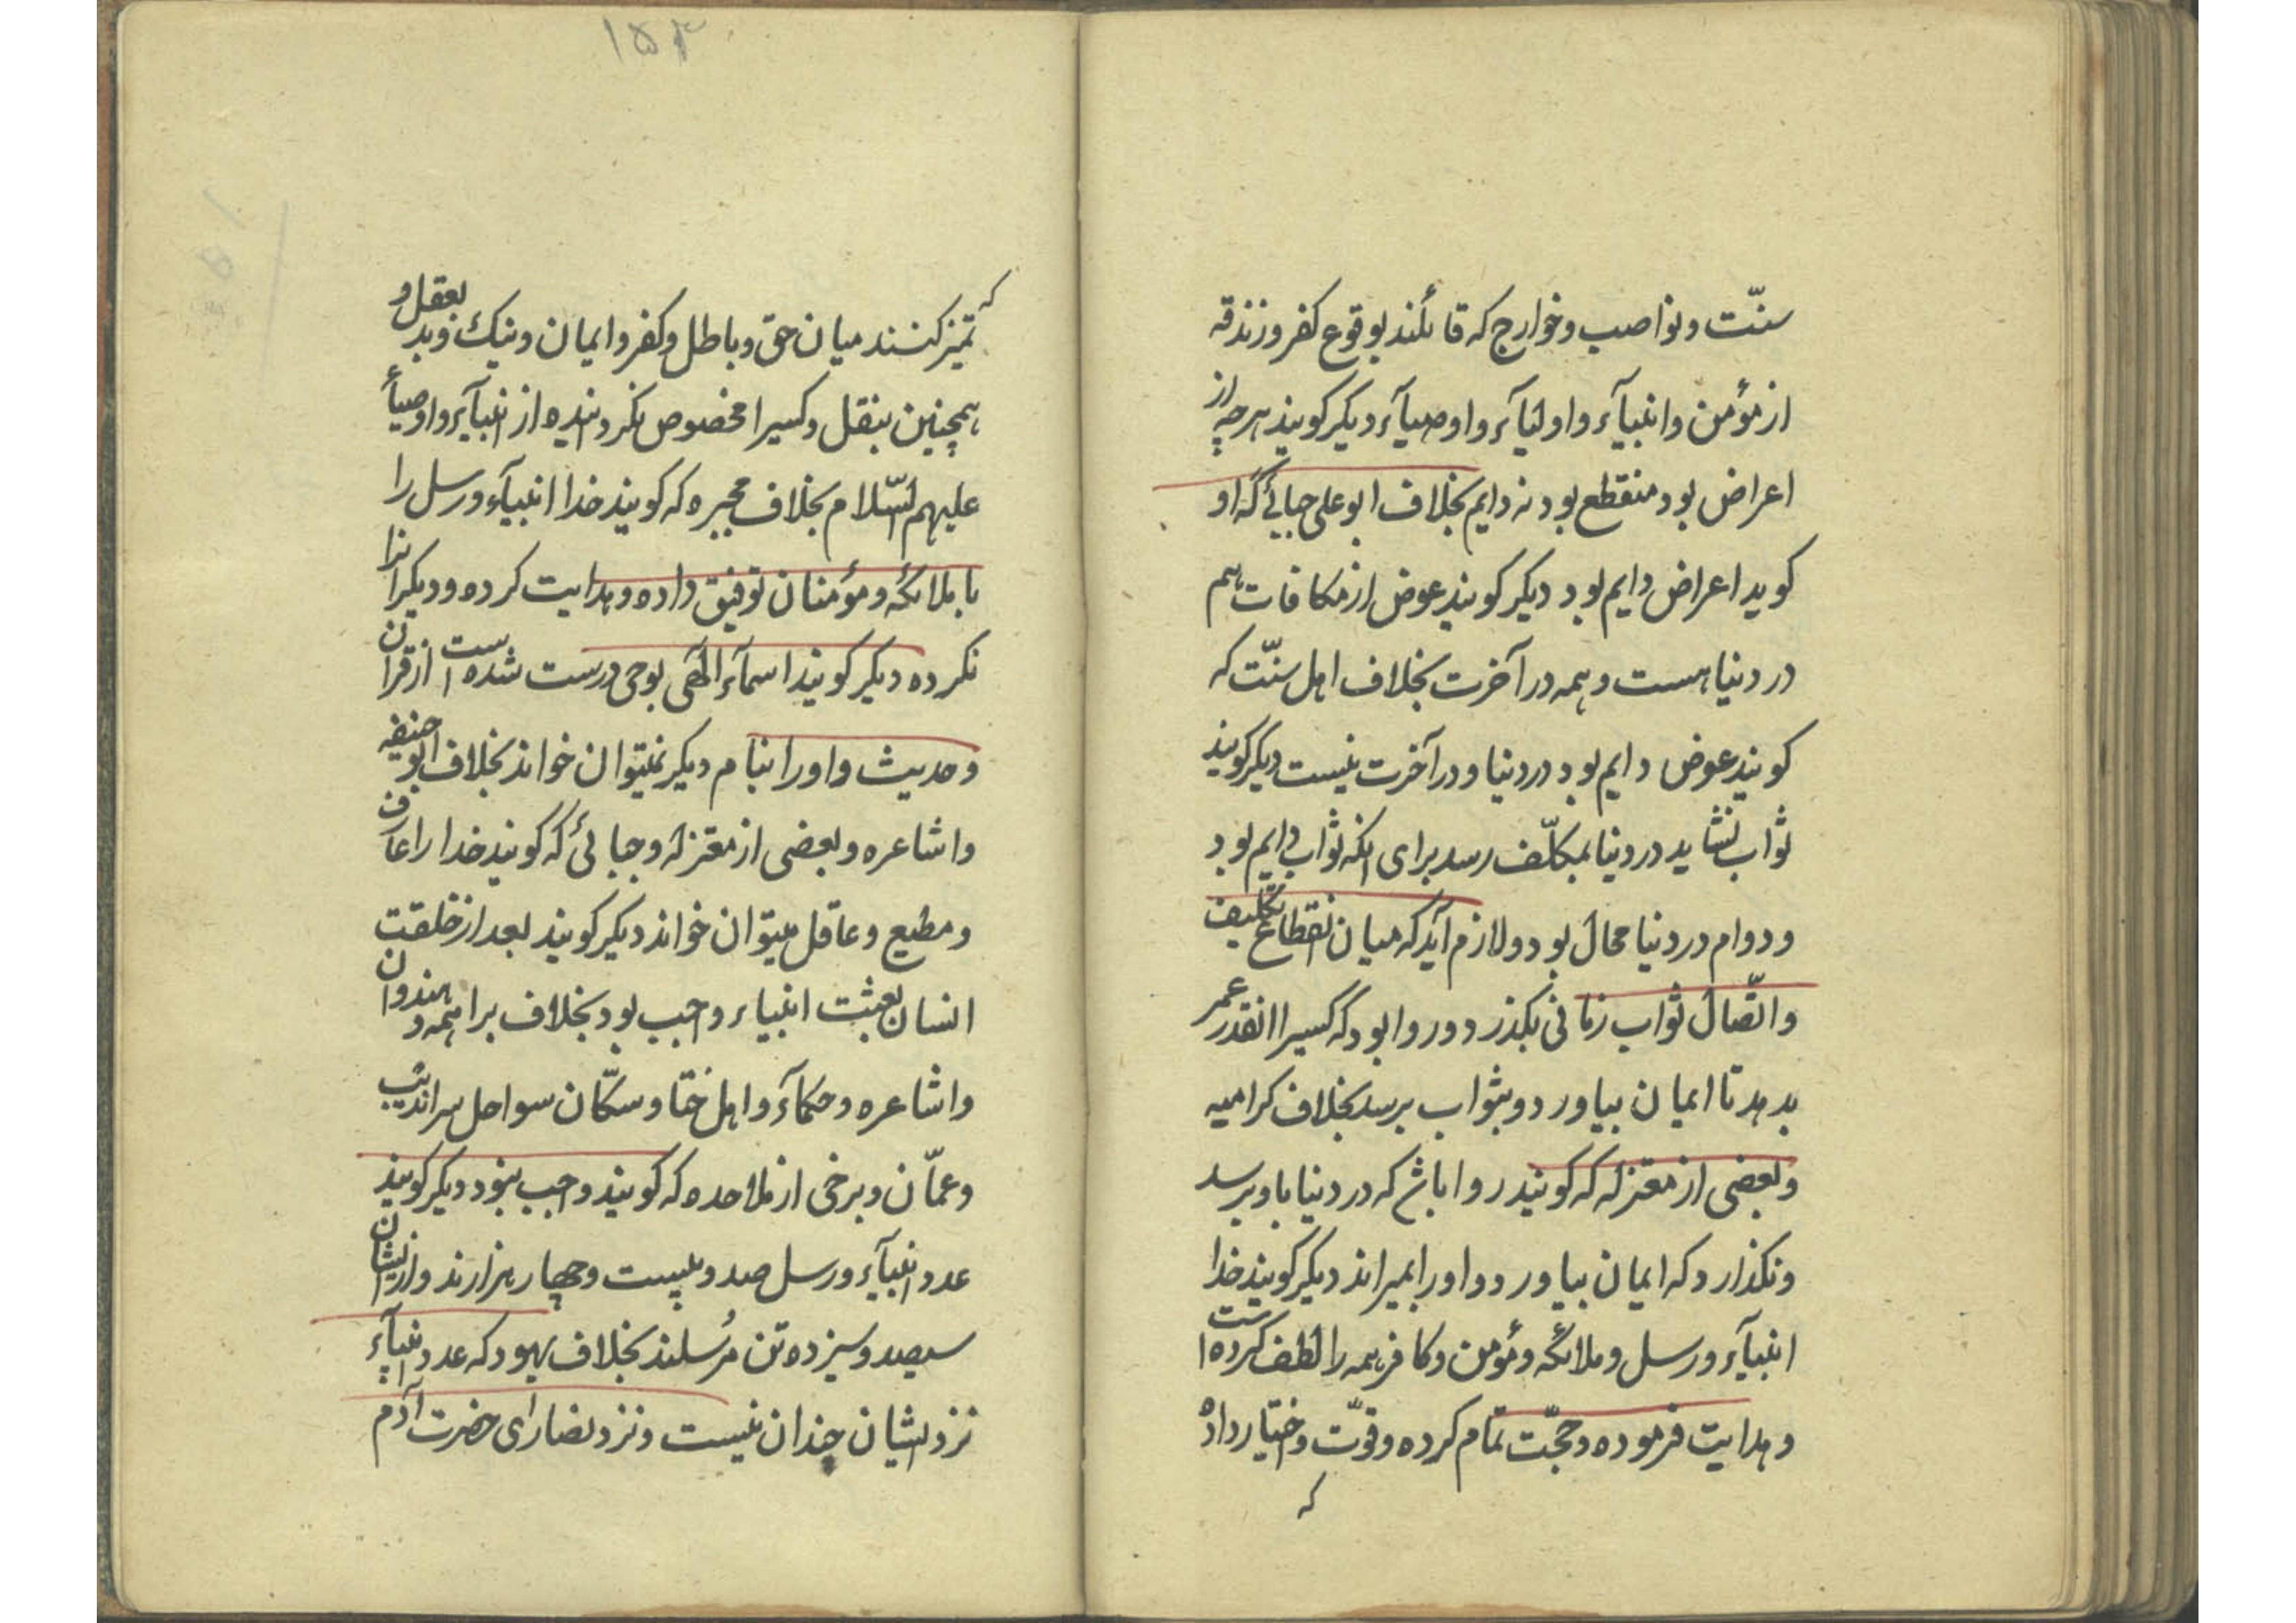 سنّت و نواصب و خوارج که قائلند بوقوع کفر و زندقه
از مؤمن و انبیآء و اولیآء و اوصیآء دیکر کویند هرچه از
اعراض بود منقطع بود نه دایم بخلاف ابو علی جبائی که او
کوید اعراض دایم بود دیکر کویند عوض از مکافات هم
در دنیا هست و همه در آخرت بخلاف اهل سنّت که
کویند عوض دایم بود در دنیا و در آخرت نیست دیکر کویند
ثواب نشاید در دنیا بمکلّف رسد برای انکه ثواب دایم بود
و دوام در دنیا محال بود و لازم آید که میان انقطاع تکلیف
و اتّصال ثواب زمانی بکذرد و روا بود که کسیرا انقدر عمر
بدهد تا ایمان بیاورد و بثواب برسد بخلاف کرامیه
و بعضی از معتزله که کویند روا باشد که در دنیا باو برسد
و نکذارد که ایمان بیاورد و اورا بمیراند دیکر کویند خدا
انبیآء و رسل و ملائکه و مؤمن و کافر همه را لطف کرده است
و هدایت فرموده و حجّت تمام کرده و قوّت و اختیار داده
که
۱۵۳
که تمیز کنند میان حق و باطل و کفر و ایمان و نیک و بد بعقل و
همچنین بنقل و کسیرا مخصوص نکردانیده از انبیآء و اوصیآء
علیهم السّلام بخلاف مجبره که کویند خدا انبیآء و رسل را
با ملائکه و مؤمنان توفیق داده و هدایت کرده و دیکرانرا
نکرده دیکر کویند اسمآء الٓهی بوحی درست شده است از قران
و حدیث و اورا بنام دیکر نمیتوان خواند بخلاف ابو حنیفه
و اشاعره و بعضی از معتزله و جبائی که کویند خدا را عارف
و مطیع و عاقل میتوان خواند دیکر کویند بعد از خلقت
انسان بعثت انبیاء واجب بود بخلاف براهمه و هندوان
و اشاعره و حکمآء و اهل ختا و سکّان سواحل سراندیب
و عمّان و برخی از ملاحده که کویند واجب نبود دیکر کویند
عدد انبیآء و رسل صد و بیست و چهار هزارند و از ایشان
سیصد و سیزده تن مُرسلند بخلاف یهود که عدد انبیآء
نزد ایشان چندان نیست و نزد نصارای حضرت آدم